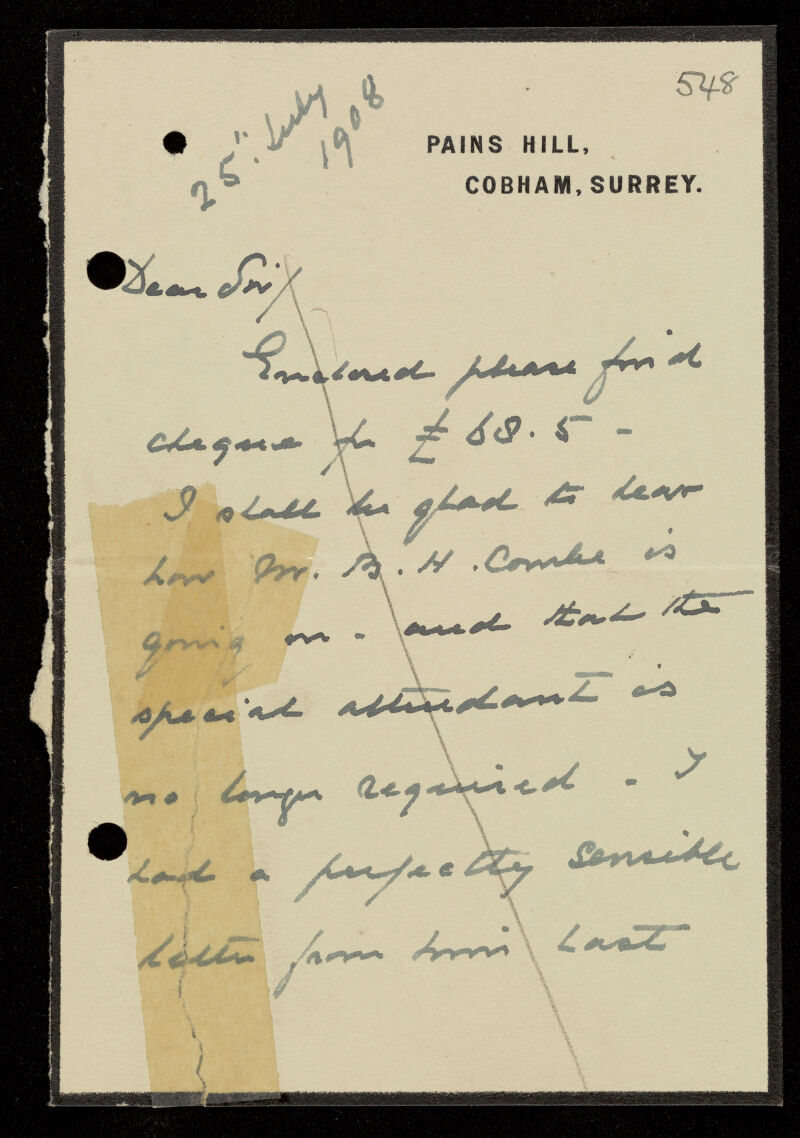 548
25". July
1908
PAINS HILL,
COBHAM, SURREY.
Dear Sir/
Enclosed please find
cheque for £68.5 -
I shall be glad to hear
how Mr. B. H. Combe is
going on - and that the
special attendant is
no longer required - I
had a perfectly sensible
letter from him last